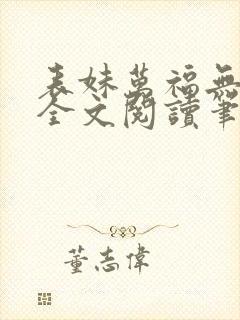 表妹萬福無
全文閱讀筆
董志偉